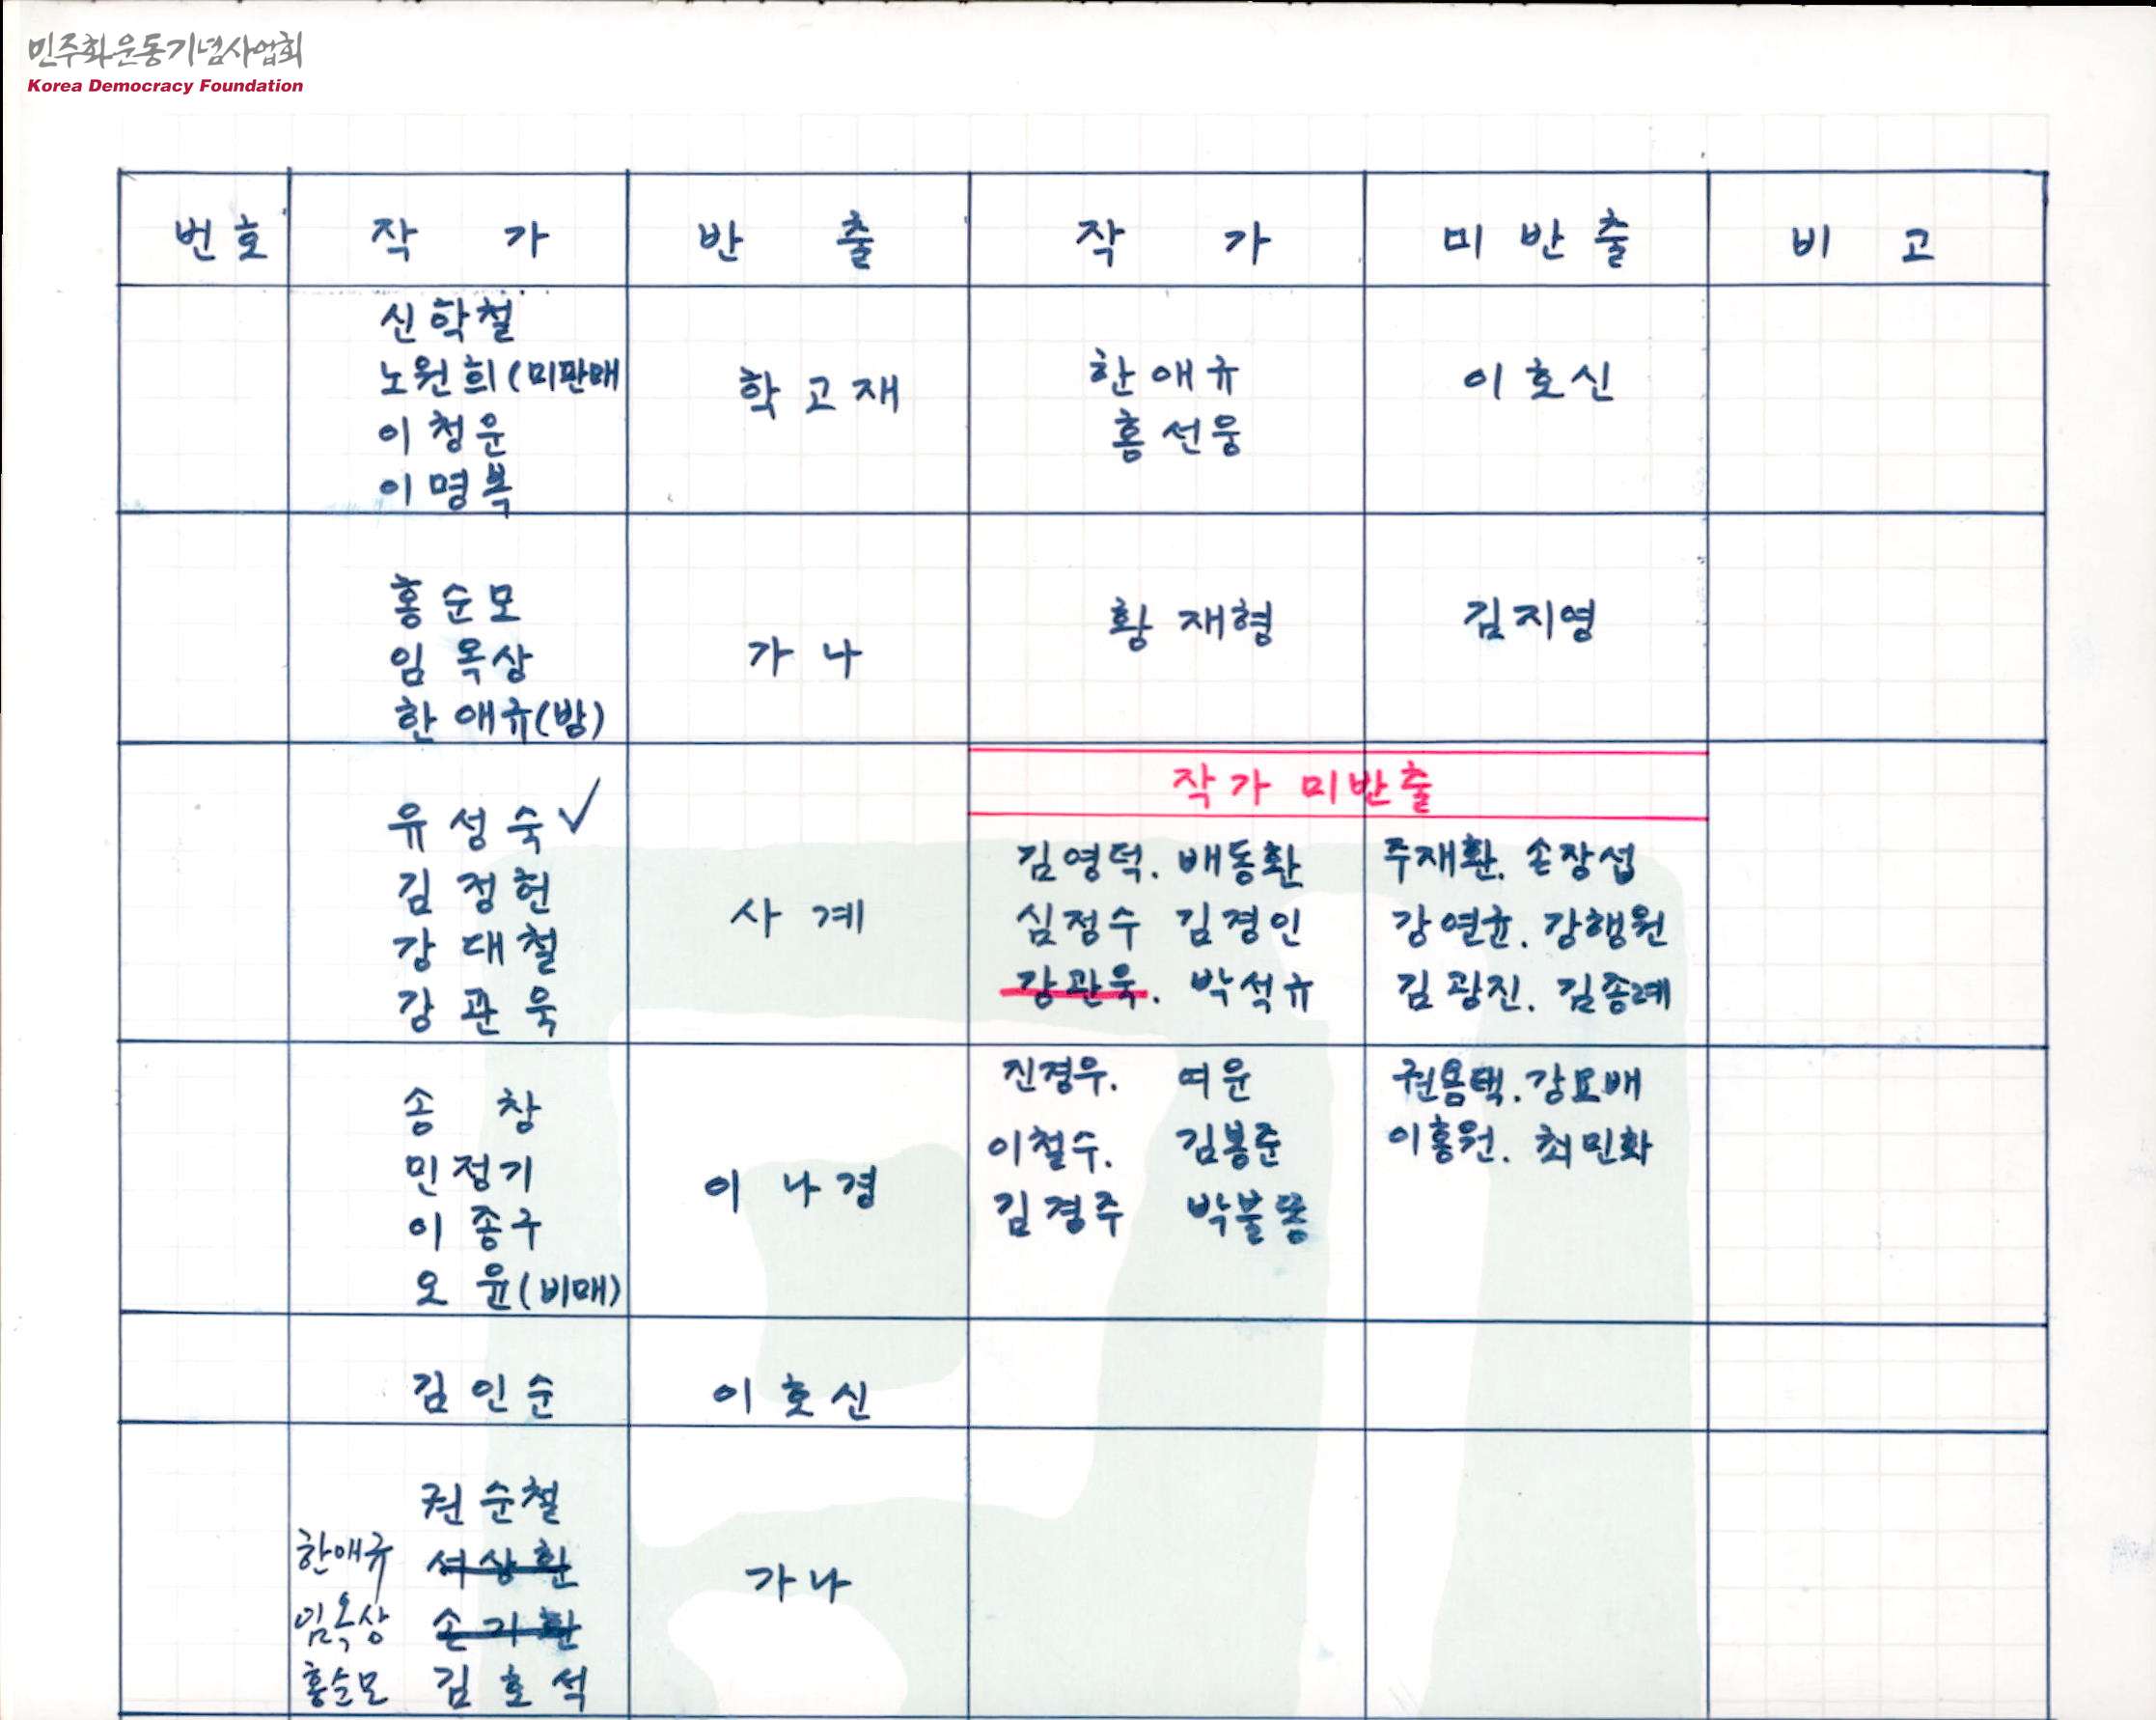 민주화운동기념사업회
Korea Democracy Foundation
번호 작 가 반 출 작 가 미 반 출 비 고
신학철
노원희(미판매
이청운
이명복
학고재
한애규
홍선웅
이호신
홍순모
임옥상
한애규(밤)
가나
황재형
김지영
유성숙✓
김정헌
강대철
강관욱
사계
작가 미반출
김영덕. 배동환 주재환. 손장섭
심정수 김경인 강연균. 강행원
강관욱. 박석규 김광진. 김종례
송 창
민정기
이종구
오 윤(비매)
이나경
진경우. 여운 권용택. 강요배
이철수. 김봉준 이홍원. 최민화
김경주 박불똥
김인순 이호신
권순철
한애규 서상환
임옥상 손기환
홍순모 김호석
가나